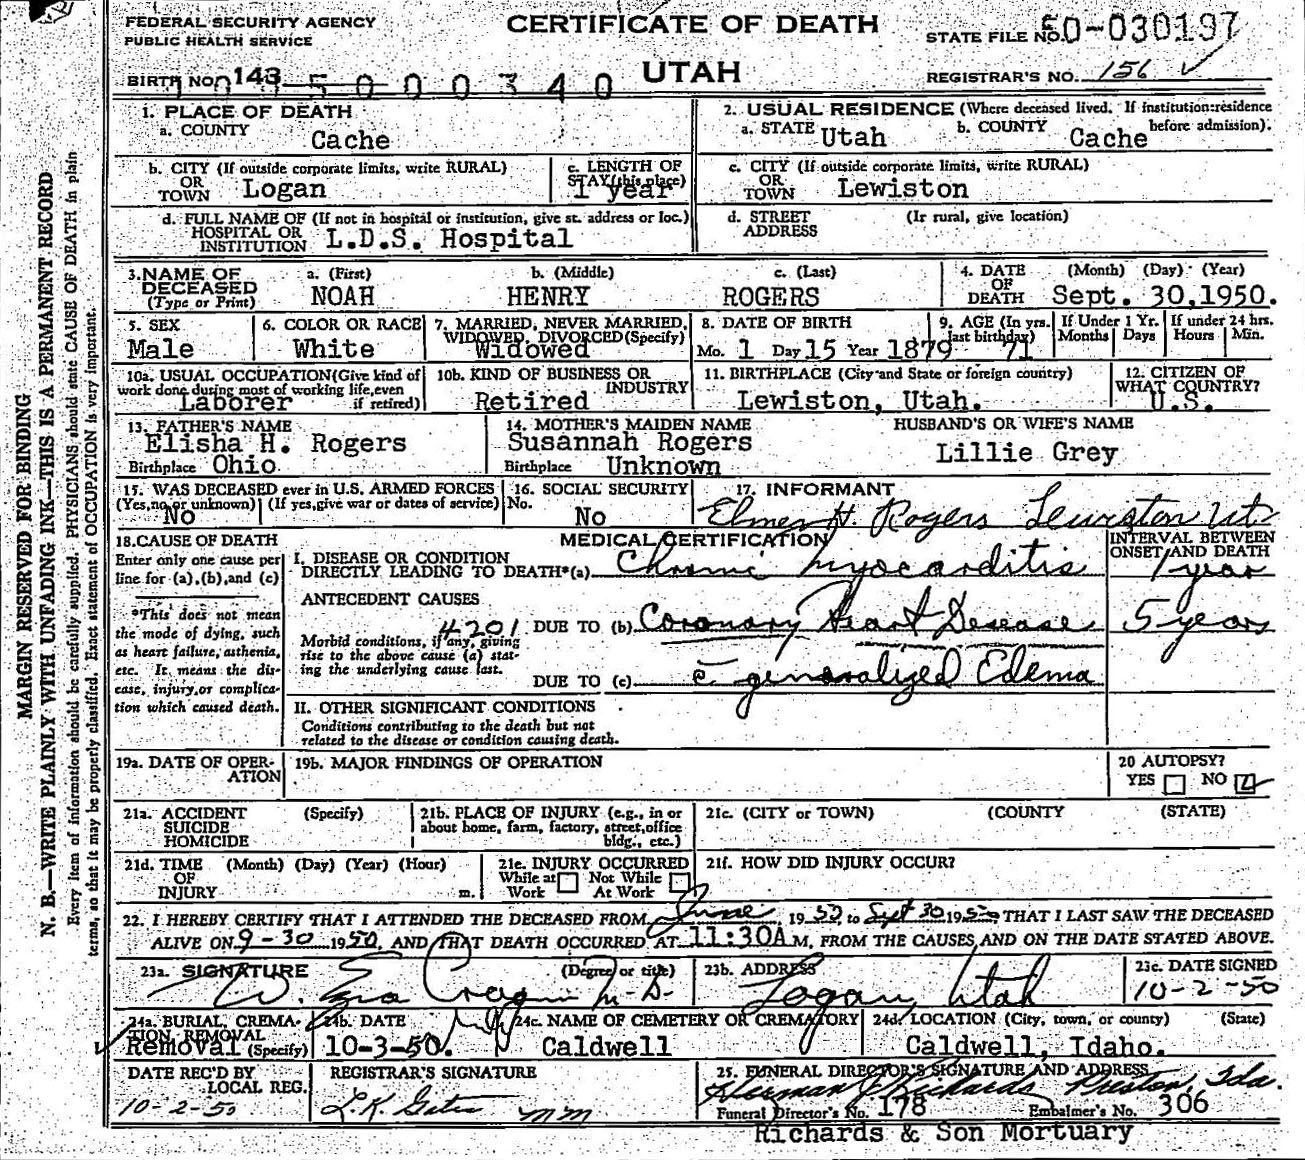 FEDERAL SECURITY AGENCY
PUBLIC HEALTH SERVICE
CERTIFICATE OF DEATH
STATE FILE NO. 50-030197
BIRTH NO. 143
UTAH
REGISTRAR'S NO. 156
1. PLACE OF DEATH
a. COUNTY
Cache
2. USUAL RESIDENCE (Where deceased lived. If institution: residence before admission).
a. STATE Utah b. COUNTY Cache
b. CITY (If outside corporate limits, write RURAL)
OR
TOWN Logan
c. LENGTH OF
STAY (this place)
1 year
c. CITY (If outside corporate limits, write RURAL)
OR
TOWN Lewiston
d. FULL NAME OF (If not in hospital or institution, give st. address or loc.)
HOSPITAL OR
INSTITUTION L.D.S. Hospital
d. STREET (Ir rural, give location)
ADDRESS
3. NAME OF
DECEASED
(Type or Print)
a. (First) b. (Middle) c. (Last)
NOAH HENRY ROGERS
4. DATE (Month) (Day) (Year)
OF
DEATH Sept. 30,1950.
5. SEX
Male
6. COLOR OR RACE
White
7. MARRIED, NEVER MARRIED,
WIDOWED, DIVORCED (Specify)
Widowed
8. DATE OF BIRTH
Mo. 1 Day 15 Year 1879
9. AGE (In yrs.
last birthday)
71
If Under 1 Yr.
Months Days
If under 24 hrs.
Hours Min.
10a. USUAL OCCUPATION (Give kind of
work done during most of working life, even
if retired)
Laborer
10b. KIND OF BUSINESS OR
INDUSTRY
Retired
11. BIRTHPLACE (City and State or foreign country)
Lewiston, Utah.
12. CITIZEN OF
WHAT COUNTRY?
U.S.
13. FATHER'S NAME
Elisha H. Rogers
Birthplace Ohio
14. MOTHER'S MAIDEN NAME
Susannah Rogers
Birthplace Unknown
HUSBAND'S OR WIFE'S NAME
Lillie Grey
15. WAS DECEASED ever in U.S. ARMED FORCES
(Yes, no, or unknown) (If yes, give war or dates of service)
No
16. SOCIAL SECURITY
No.
No
17. INFORMANT
Elmer H. Rogers Lewiston Ut.
18. CAUSE OF DEATH
Enter only one cause per
line for (a), (b), and (c)
*This does not mean
the mode of dying, such
as heart failure, asthenia,
etc. It means the dis-
ease, injury, or complica-
tion which caused death.
MEDICAL CERTIFICATION
INTERVAL BETWEEN
ONSET AND DEATH
I. DISEASE OR CONDITION
DIRECTLY LEADING TO DEATH*(a) Chronic Myocarditis 1 year
ANTECEDENT CAUSES
4201 DUE TO (b) Coronary Heart Desease 5 years
Morbid conditions, if any, giving
rise to the above cause (a) stat-
ing the underlying cause last.
DUE TO (c) c̄ generalized Edema
II. OTHER SIGNIFICANT CONDITIONS
Conditions contributing to the death but not
related to the disease or condition causing death.
19a. DATE OF OPER-
ATION
19b. MAJOR FINDINGS OF OPERATION
20 AUTOPSY?
YES NO
21a. ACCIDENT (Specify)
SUICIDE
HOMICIDE
21b. PLACE OF INJURY (e.g., in or
about home, farm, factory, street, office
bldg., etc.)
21c. (CITY or TOWN) (COUNTY) (STATE)
21d. TIME (Month) (Day) (Year) (Hour)
OF
INJURY m.
21e. INJURY OCCURRED
While at Not While
Work At Work
21f. HOW DID INJURY OCCUR?
22. I HEREBY CERTIFY THAT I ATTENDED THE DECEASED FROM June 1950 to Sept 30 1950 THAT I LAST SAW THE DECEASED
ALIVE ON 9-30 1950, AND THAT DEATH OCCURRED AT 11:30A M, FROM THE CAUSES AND ON THE DATE STATED ABOVE.
23a. SIGNATURE (Degree or title)
W. Ezra Cragun M.D.
23b. ADDRESS
Logan, Utah
23c. DATE SIGNED
10-2-50
24a. BURIAL, CREMA-
TION, REMOVAL
Removal (Specify)
24b. DATE
10-3-50.
24c. NAME OF CEMETERY OR CREMATORY
Caldwell
24d. LOCATION (City, town, or county) (State)
Caldwell, Idaho.
DATE REC'D BY
LOCAL REG.
10-2-50
REGISTRAR'S SIGNATURE
25. FUNERAL DIRECTOR'S SIGNATURE AND ADDRESS
Herman J Richards Preston, Ida.
Funeral Director's No. 178 Embalmer's No. 306
Richards & Son Mortuary
MARGIN RESERVED FOR BINDING
N. B.—WRITE PLAINLY WITH UNFADING INK—THIS IS A PERMANENT RECORD
Every item of information should be carefully supplied. PHYSICIANS should state CAUSE OF DEATH in plain
terms, so that it may be properly classified. Exact statement of OCCUPATION is very important.